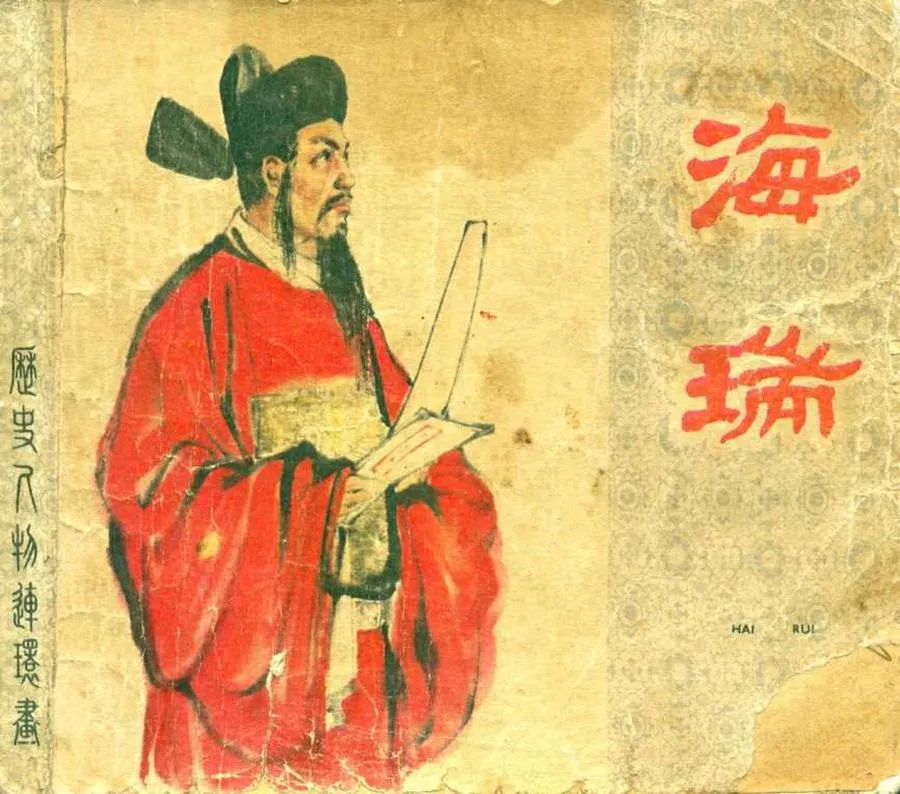 歷史人物連環畫
海
瑞
HAI RUI